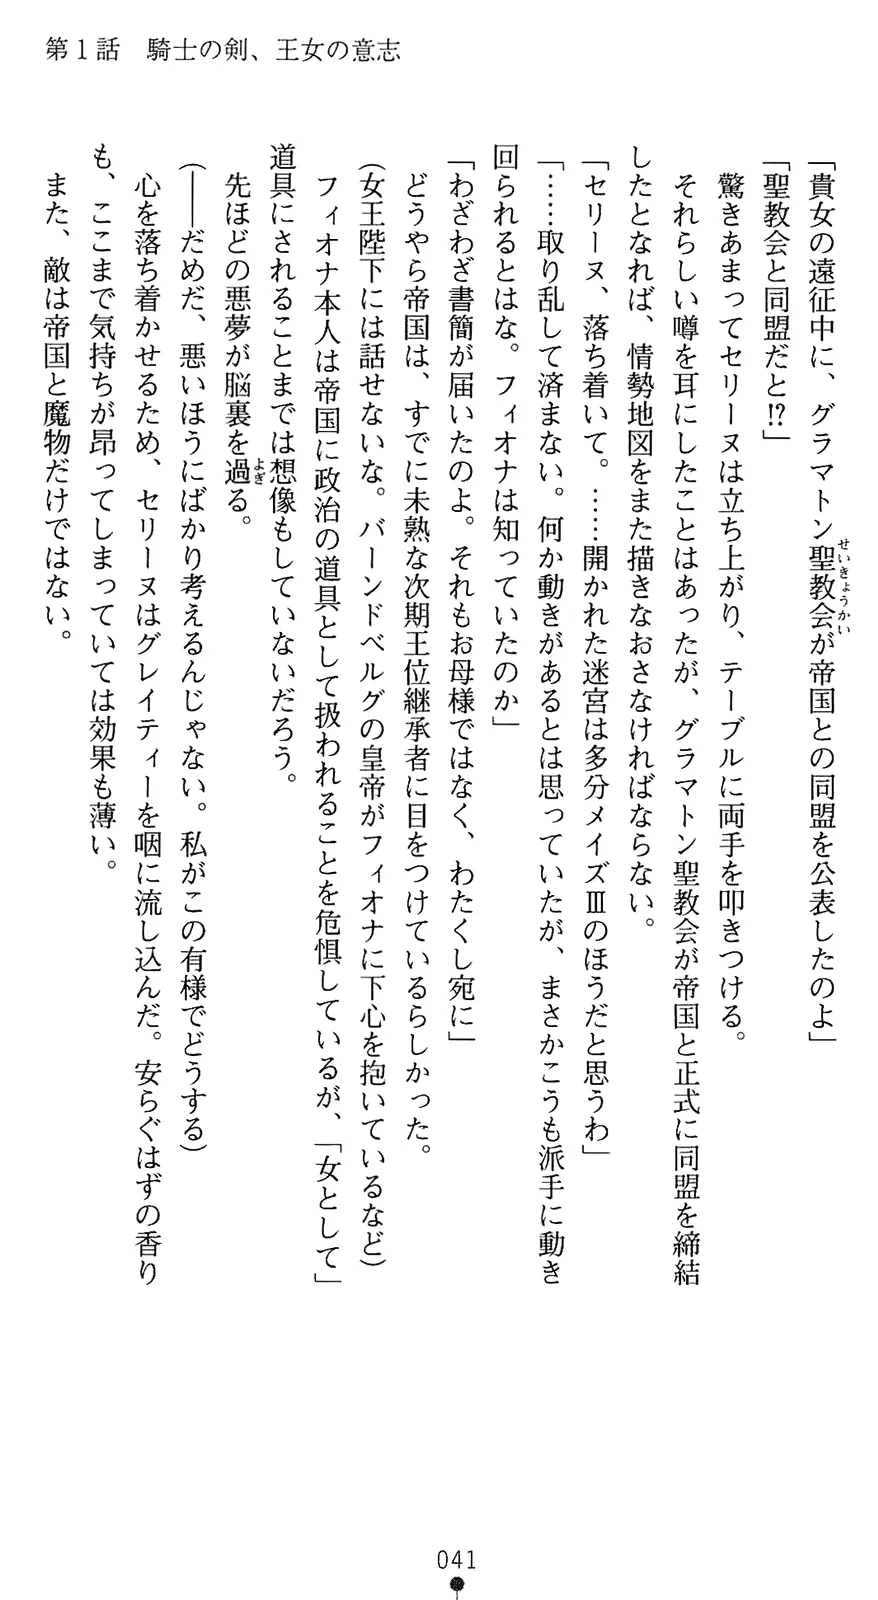 第1話　騎士の剣、王女の意志
「貴女の遠征中に、グラマトン聖教会が帝国との同盟を公表したのよ」
せいきょうかい
「聖教会と同盟だと!?」
　驚きあまってセリーヌは立ち上がり、テーブルに両手を叩きつける。
　それらしい噂を耳にしたことはあったが、グラマトン聖教会が帝国と正式に同盟を締結
したとなれば、情勢地図をまた描きなおさなければならない。
「セリーヌ、落ち着いて。……開かれた迷宮は多分メイズⅢのほうだと思うわ」
「……取り乱して済まない。何か動きがあるとは思っていたが、まさかこうも派手に動き
回られるとはな。フィオナは知っていたのか」
「わざわざ書簡が届いたのよ。それもお母様ではなく、わたくし宛に」
　どうやら帝国は、すでに未熟な次期王位継承者に目をつけているらしかった。
（女王陛下には話せないな。バーンドベルグの皇帝がフィオナに下心を抱いているなど）
　フィオナ本人は帝国に政治の道具として扱われることを危惧しているが、「女として」
道具にされることまでは想像もしていないだろう。
　先ほどの悪夢が脳裏を過る。
よぎ
（――だめだ、悪いほうにばかり考えるんじゃない。私がこの有様でどうする）
　心を落ち着かせるため、セリーヌはグレイティーを咽に流し込んだ。安らぐはずの香り
も、ここまで気持ちが昂ってしまっていては効果も薄い。
　また、敵は帝国と魔物だけではない。
041